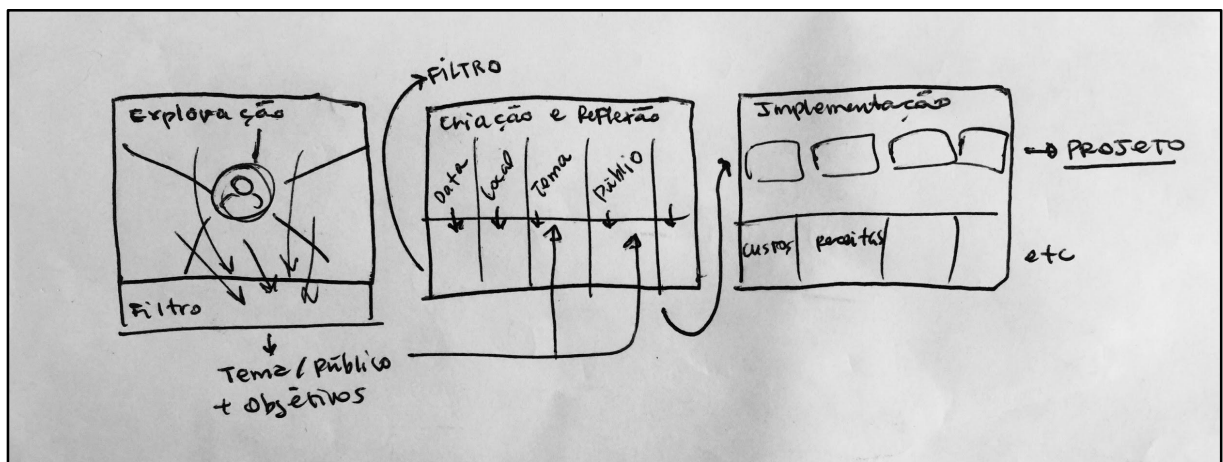 Exploração
Filtro
Tema / Público
+ Objetivos
FILTRO
Criação e Reflexão
Data
Local
Tema
Público
Implementação
custos
receitas
PROJETO
etc